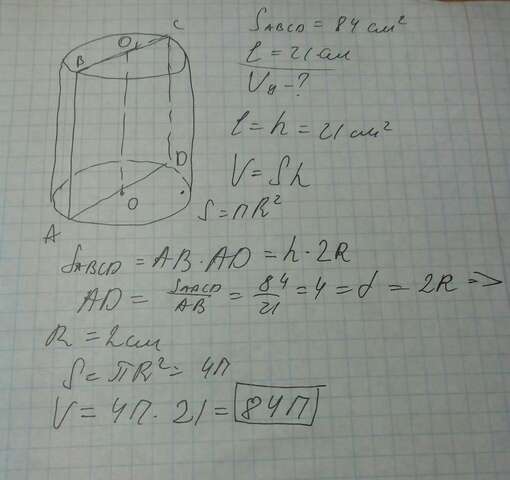 C
O₁
B
D
O
A
S_ABCD = 84 см²
l = 21 см
Vц - ?
l = h = 21 см²
V = Sh
S = пR²
S_ABCD = AB · AD = h · 2R
AD = S_ABCD/AB = 84/21 = 4 = d = 2R =>
R = 2 см
S = πR² = 4п
V = 4п · 21 = 84п